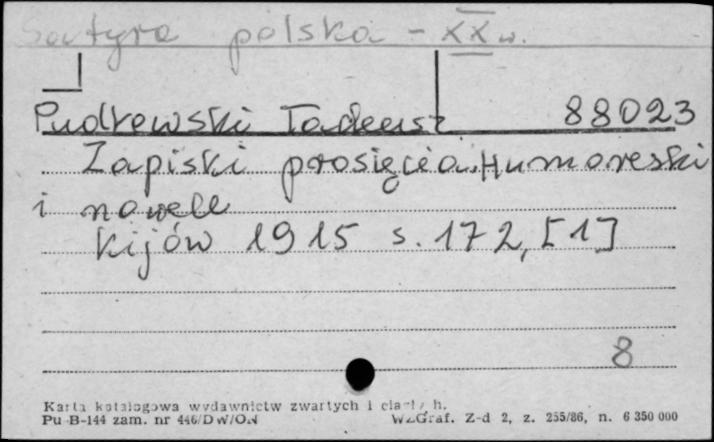 Satyra polska - XX w.
Pudłowski Tadeusz 88023
Zapiski prosięcia. Humoreski
i nowele
Kijów 1915 s. 172, [1]
8
Karta katalogowa wydawnictw zwartych i
Pu-B-144 zam. nr 446/DW/ON WZGraf. Z-d 2, z. 255/86, n. 6 350 000